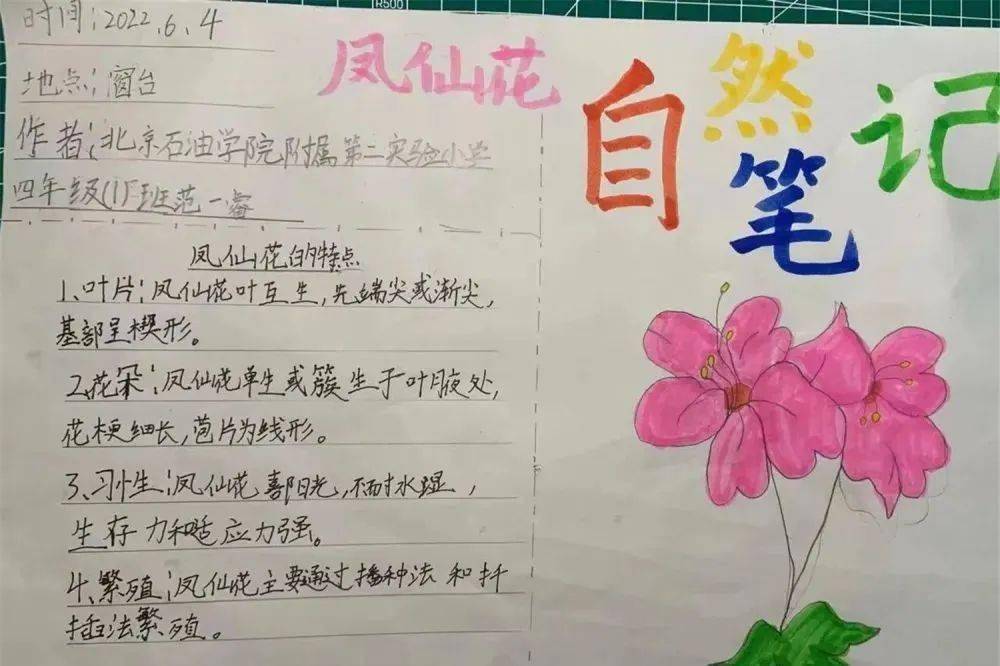 R500
时间:2022.6.4
地点:窗台
作者:北京石油学院附属第二实验小学
四年级(1)班范一睿
凤仙花
自然
笔记
凤仙花的特点
1、叶片:凤仙花叶互生,先端尖或渐尖,
基部呈楔形。
2、花朵:凤仙花单生或簇生于叶腋处,
花梗细长,苞片为线形。
3、习性:凤仙花喜阳光,不耐水湿,
生存力和适应力强。
4、繁殖:凤仙花主要通过播种法和扦
插法繁殖。